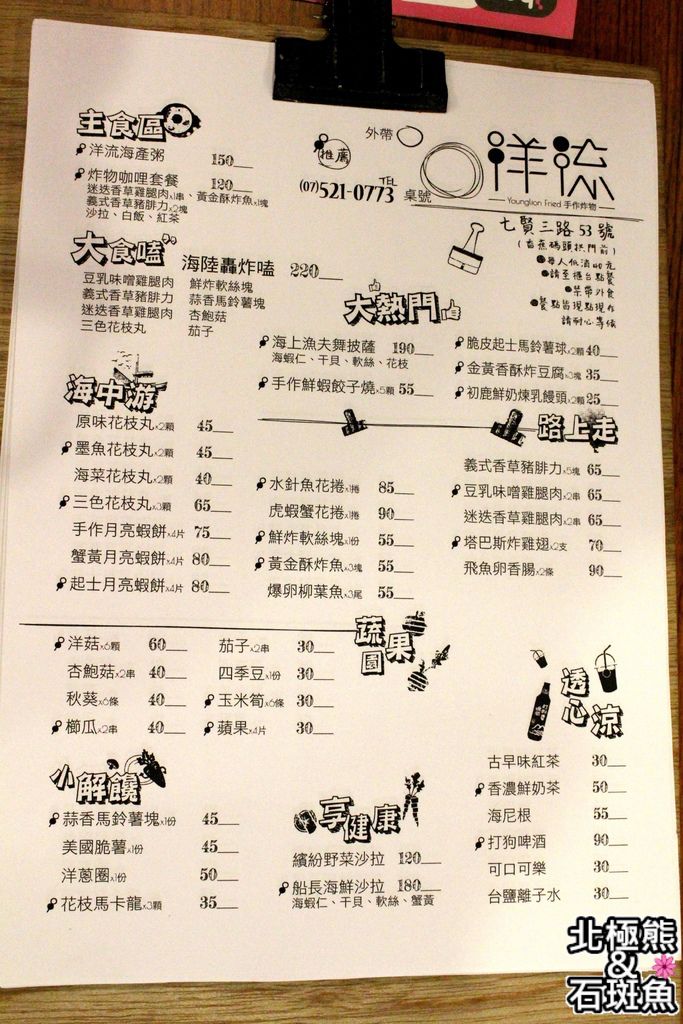 主食區
洋流海產粥 150
炸物咖哩套餐 120
迷迭香草雞腿肉x1串、黃金酥炸魚x1塊
義式香草豬腓力x2塊
沙拉、白飯、紅茶
外帶
推薦
TEL
(07)521-0773 桌號
洋流
Younglion Fried 手作炸物
七賢三路53號
(香蕉碼頭拱門前)
每人低消60元
請至櫃台點餐
禁帶外食
餐點皆現點現作
請耐心等候
大食嗑
海陸轟炸嗑 220
豆乳味噌雞腿肉 鮮炸軟絲塊
義式香草豬腓力 蒜香馬鈴薯塊
迷迭香草雞腿肉 杏鮑菇
三色花枝丸 茄子
大熱門
海上漁夫舞披薩 190
海蝦仁、干貝、軟絲、花枝
手作鮮蝦餃子燒x5顆 55
脆皮起士馬鈴薯球x2顆 40
金黃香酥炸豆腐x3塊 35
初鹿鮮奶煉乳饅頭x2顆 25
海中游
原味花枝丸x2顆 45
墨魚花枝丸x2顆 45
海菜花枝丸x2顆 40
三色花枝丸x3顆 65
手作月亮蝦餅x4片 75
蟹黃月亮蝦餅x4片 80
起士月亮蝦餅x4片 80
水針魚花捲x1捲 85
虎蝦蟹花捲x1捲 90
鮮炸軟絲塊x1份 55
黃金酥炸魚x3塊 55
爆卵柳葉魚x3尾 55
路上走
義式香草豬腓力x5塊 65
豆乳味噌雞腿肉x2串 65
迷迭香草雞腿肉x2串 65
塔巴斯炸雞翅x2支 70
飛魚卵香腸x2條 90
蔬果園
洋菇x6顆 60
杏鮑菇x2串 40
秋葵x6條 40
櫛瓜x2串 40
茄子x2串 30
四季豆x1份 30
玉米筍x6條 30
蘋果x4片 30
透心涼
古早味紅茶 30
香濃鮮奶茶 50
海尼根 55
打狗啤酒 90
可口可樂 30
台鹽離子水 30
小解饞
蒜香馬鈴薯塊x1份 45
美國脆薯x1份 45
洋蔥圈x1份 50
花枝馬卡龍x3顆 35
享健康
繽紛野菜沙拉 120
船長海鮮沙拉 180
海蝦仁、干貝、軟絲、蟹黃
北極熊
&
石斑魚